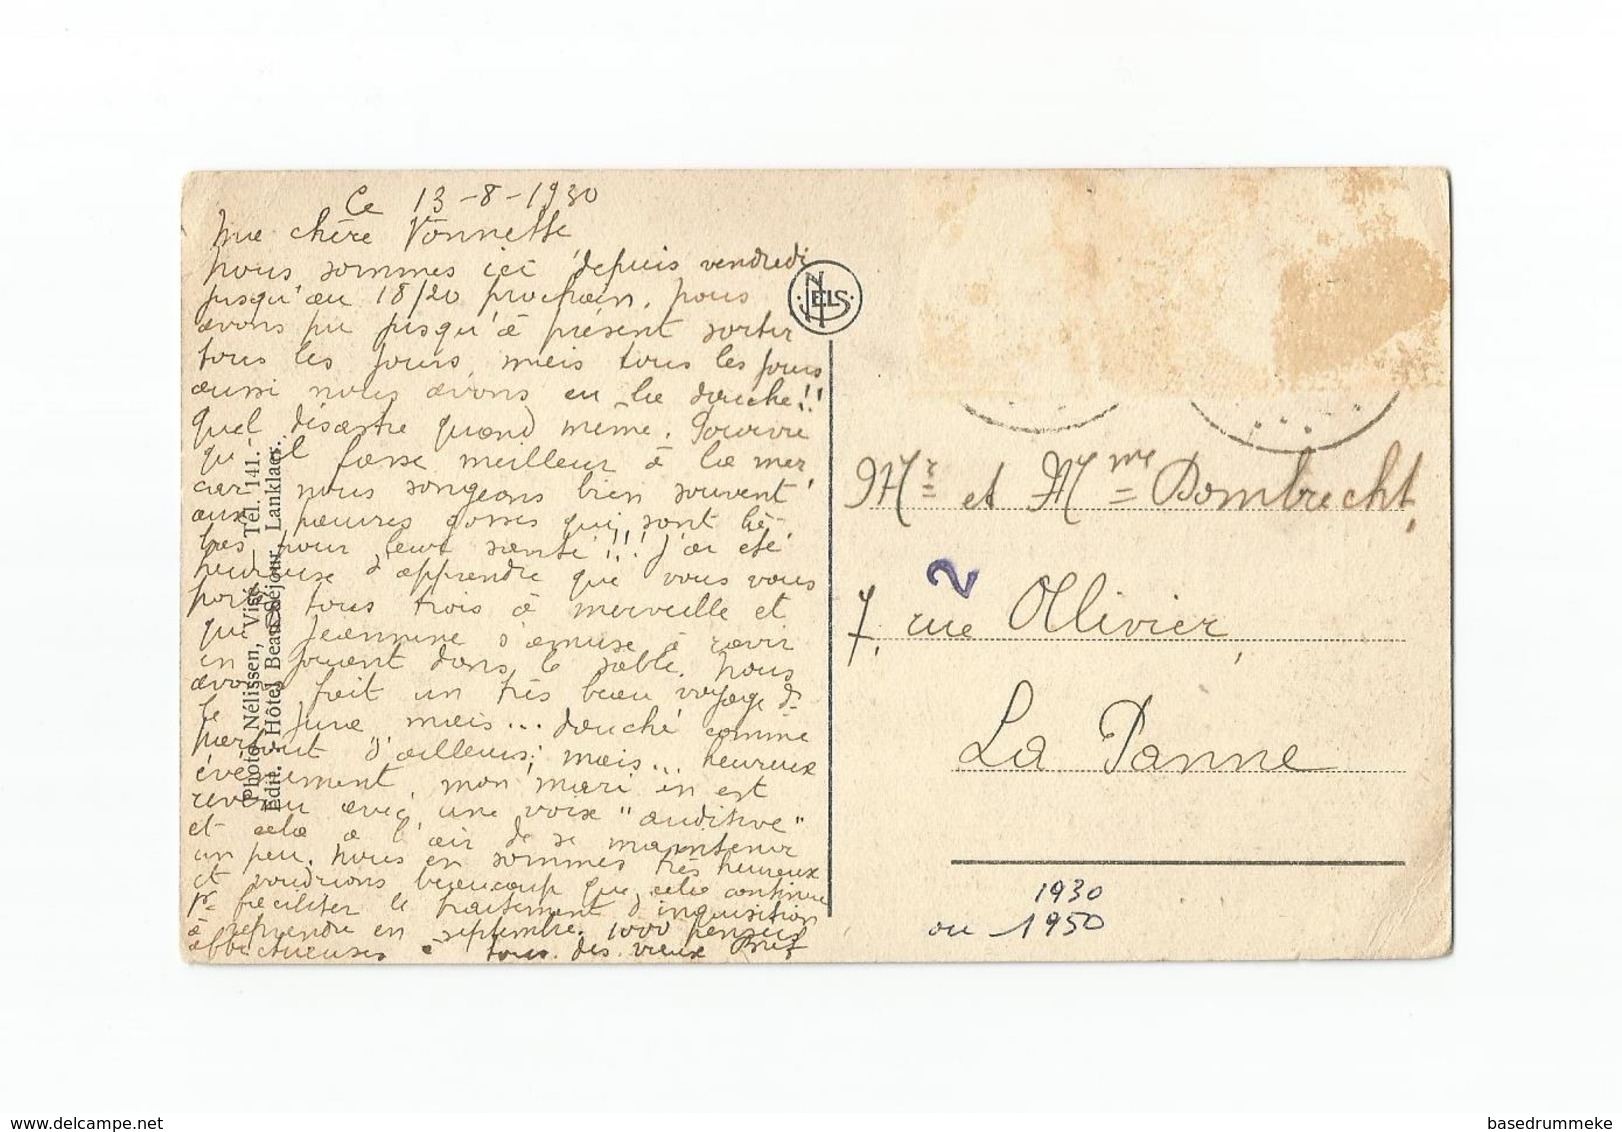 Ce 13-8-1930
Ma chère Vonnette
nous sommes ici depuis vendredi
jusqu'au 18/20 prochain. Nous
avons pu jusqu'à présent sortir
tous les jours, mais tous les jours
aussi nous avons eu la douche!!
Quel désastre quand même.
qu'il fasse meilleur à la mer
car nous songeons bien souvent
aux pauvres gosses qui sont là-
bas pour leur santé!!! J'ai été
heureuse d'apprendre que vous vous
portez tous trois à merveille et
que Jeannine s'amuse à ravir
en jouant dans le sable. Nous
avons fait un très beau voyage ds
le Jura, mais... douché comme
partout d'ailleurs; mais... heureux
évènement, mon mari en est
revenu avec une voix "auditive"
et cela a l'air de se maintenir
un peu. Nous en sommes très heureux
et voudrions beaucoup que cela continue
pr faciliter le traitement d'inquisition
à reprendre en septembre. 1000 pensées
affectueuses à tous des vieux
Photo Nélissen, Visé. Tél. 141.
Edit. : Hôtel Beau-Séjour, Lanklaer.
NELS
Mr et Mme Dombrecht,
2
7, rue Ollivier,
La Panne
1930
ou 1950
www.delcampe.net
basedrummeke